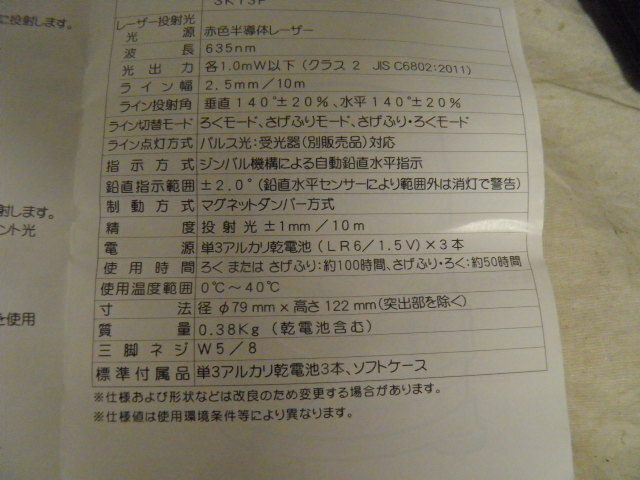 に投射します。
射します。
ント光
を使用
SK13P
レーザー投射光
光源 赤色半導体レーザー
波長 635nm
光出力 各1.0mW以下(クラス2 JIS C6802:2011)
ライン幅 2.5mm/10m
ライン投射角 垂直140°±20%、水平140°±20%
ライン切替モード ろくモード、さげふりモード、さげふり・ろくモード
ライン点灯方式 パルス光:受光器(別販売品)対応
指示方式 ジンバル機構による自動鉛直水平指示
鉛直指示範囲 ±2.0°(鉛直水平センサーにより範囲外は消灯で警告)
制動方式 マグネットダンパー方式
精度 投射光±1mm/10m
電源 単3アルカリ乾電池(LR6/1.5V)×3本
使用時間 ろく または さげふり:約100時間、さげふり・ろく:約50時間
使用温度範囲 0℃~40℃
寸法 径 φ79mm×高さ122mm(突出部を除く)
質量 0.38Kg(乾電池含む)
三脚ネジ W5/8
標準付属品 単3アルカリ乾電池3本、ソフトケース
※仕様および形状などは改良のため変更する場合があります。
※仕様値は使用環境条件等により異なります。